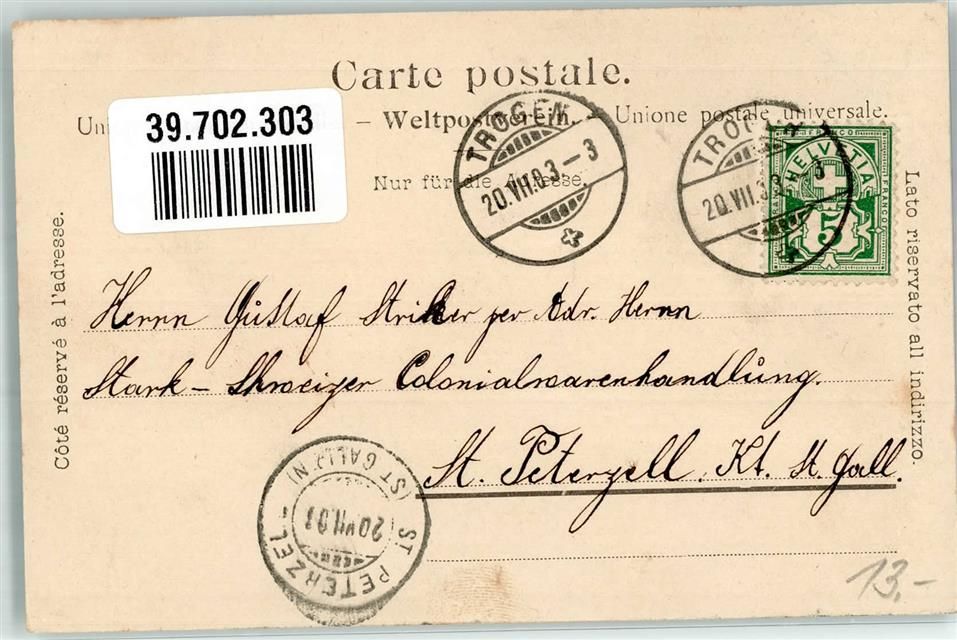 Carte postale.
39.702.303
Un – Weltpostverein. – Unione postale universale.
Nur für die Adresse.
TROGEN
20.VII.03–3
TROGEN
20.VII.03 –3
HELVETIA
FRANCO
FRANCO
5
Côté réservé à l'adresse.
Lato riservato all indirizzo.
Herrn Gustaf Striker per Adr. Herrn
Stark – Schweizer Colonialwarenhandlung.
St. Peterzell. Kt. St. Gall.
ST. PETERZELL
(ST GALLEN)
20.VII.03
13.–